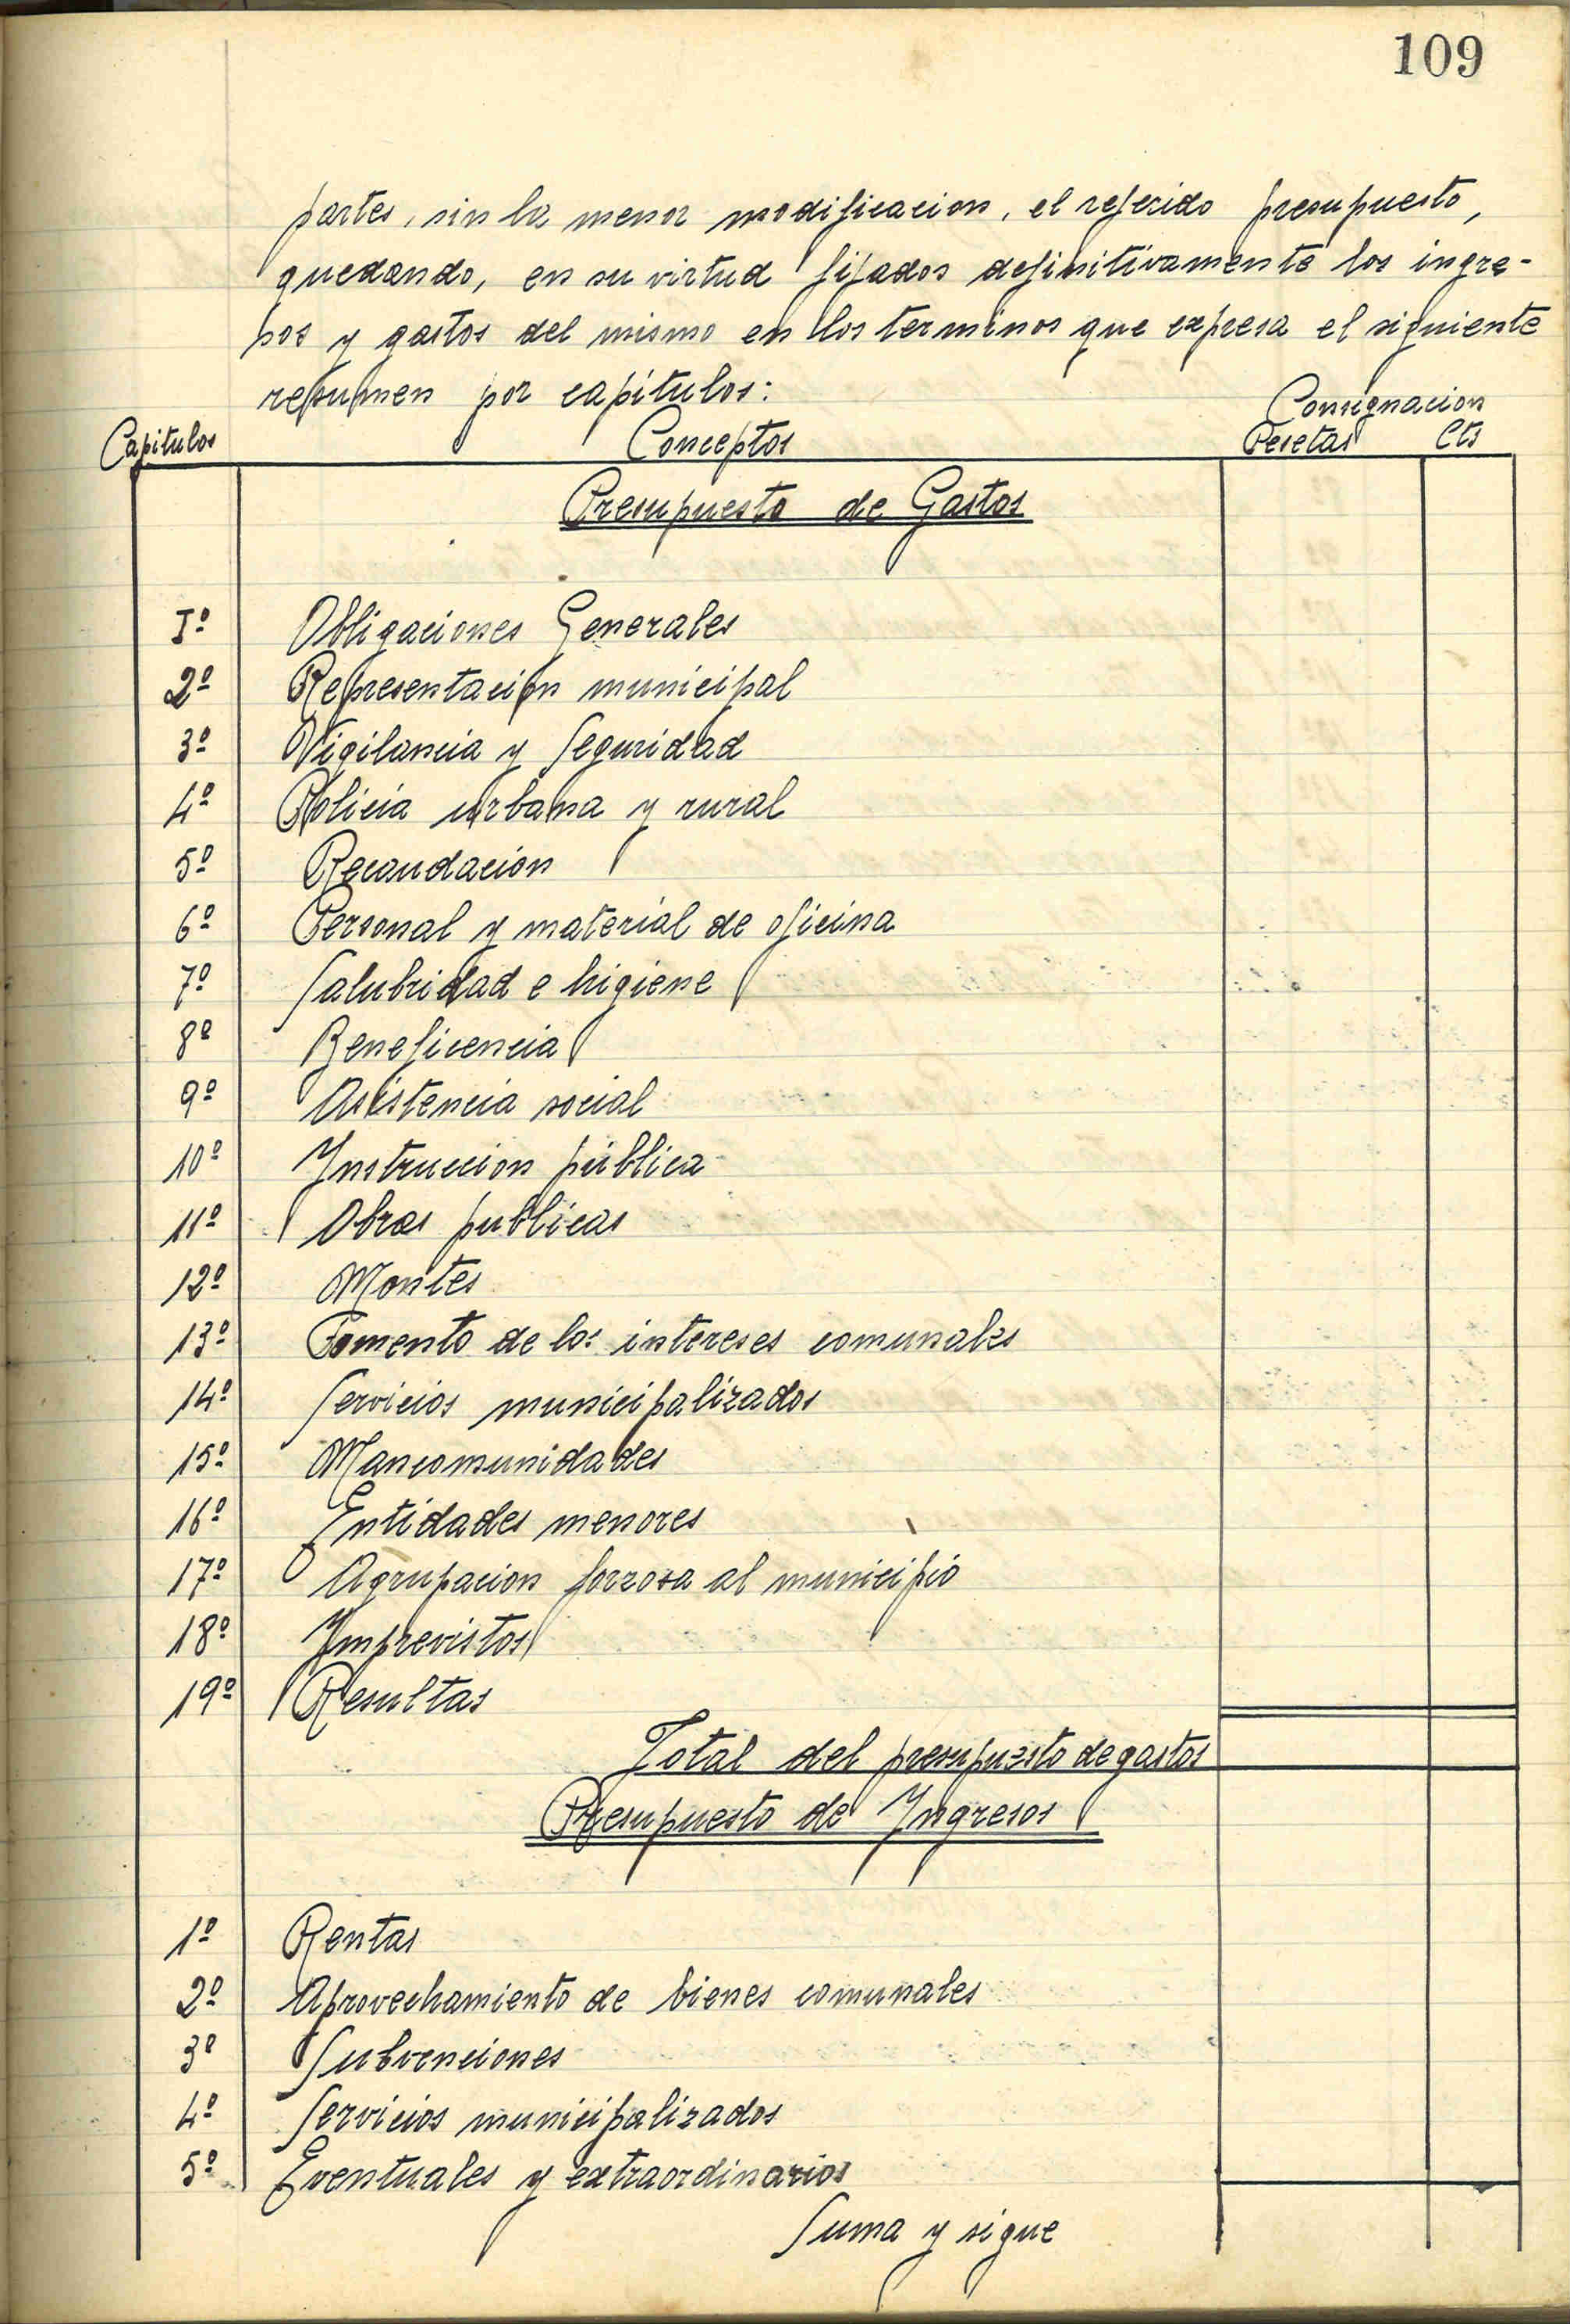 109
partes, sin la menor modificacion, el referido presupuesto,
quedando, en su virtud fijados definitivamente los ingre-
sos y gastos del mismo en los terminos que expresa el siguiente
resumen por capítulos:
Consignacion
Capitulos Conceptos Pesetas Cts
Presupuesto de Gastos
Iº Obligaciones Generales
2º Representación municipal
3º Vigilancia y Seguridad
4º Policia urbana y rural
5º Recaudacion
6º Personal y material de oficina
7º Salubridad e higiene
8º Beneficencia
9º Asistencia social
10º Instruccion pública
11º Obras publicas
12º Montes
13º Fomento de los intereses comunales
14º Servicios municipalizados
15º Mancomunidades
16º Entidades menores
17º Agrupacion forzosa al municipio
18º Imprevistos
19º Resultas
Total del presupuesto de gastos
Presupuesto de Ingresos
1º Rentas
2º Aprovechamiento de bienes comunales
3º Subvenciones
4º Servicios municipalizados
5º Eventuales y extraordinarios
Suma y sigue